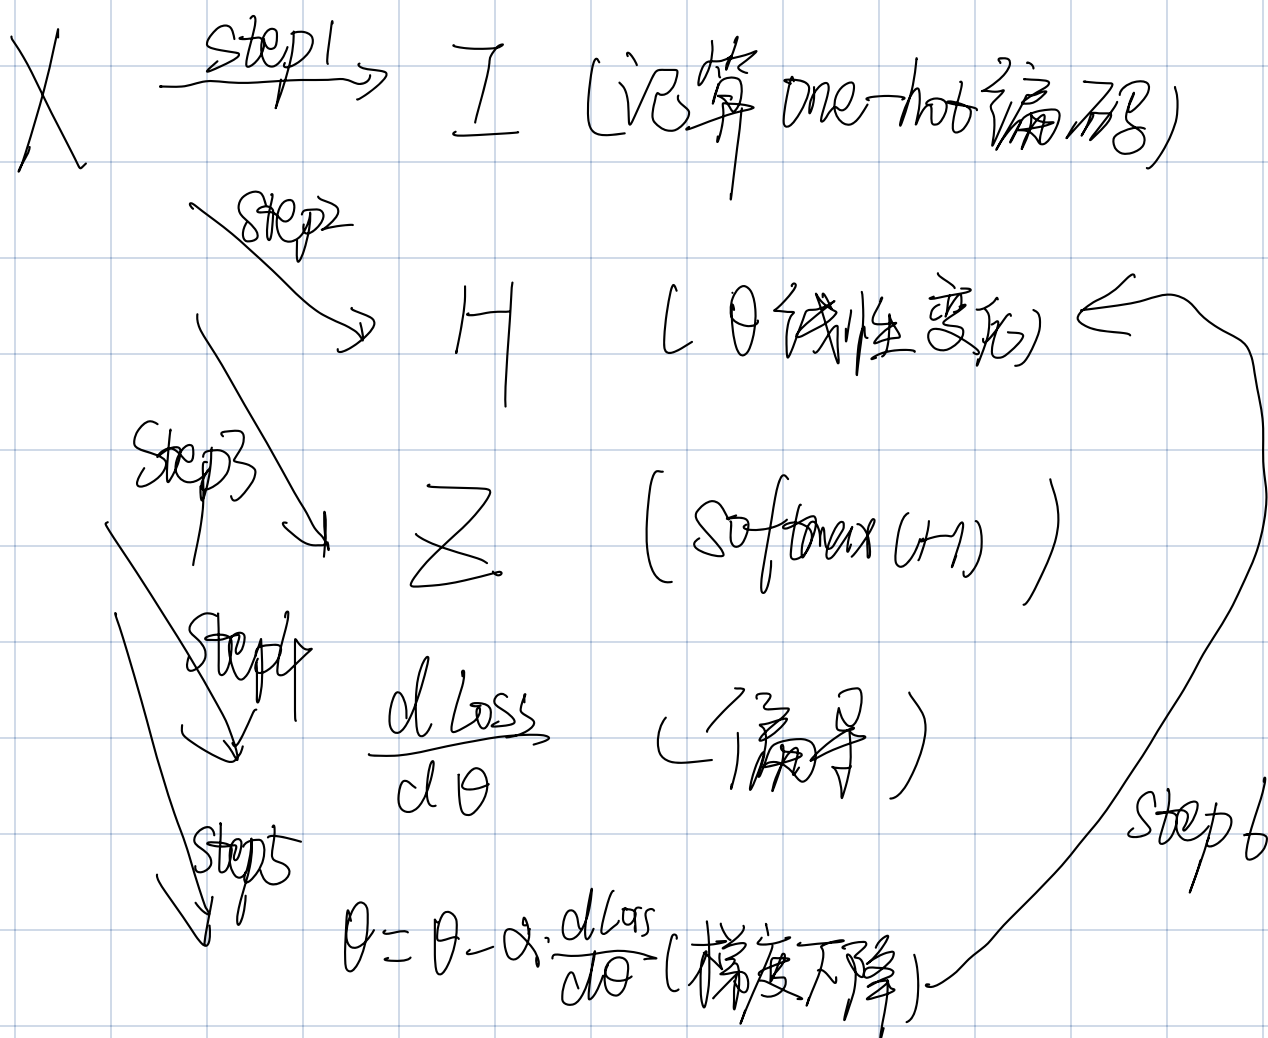 X step1 I (计算one-hot编码)
step2
H (θ线性变化)
step3
Z (softmax(H))
step4
dLoss/dθ (偏导)
step5
step6
θ=θ-α·dLoss/dθ(梯度下降)